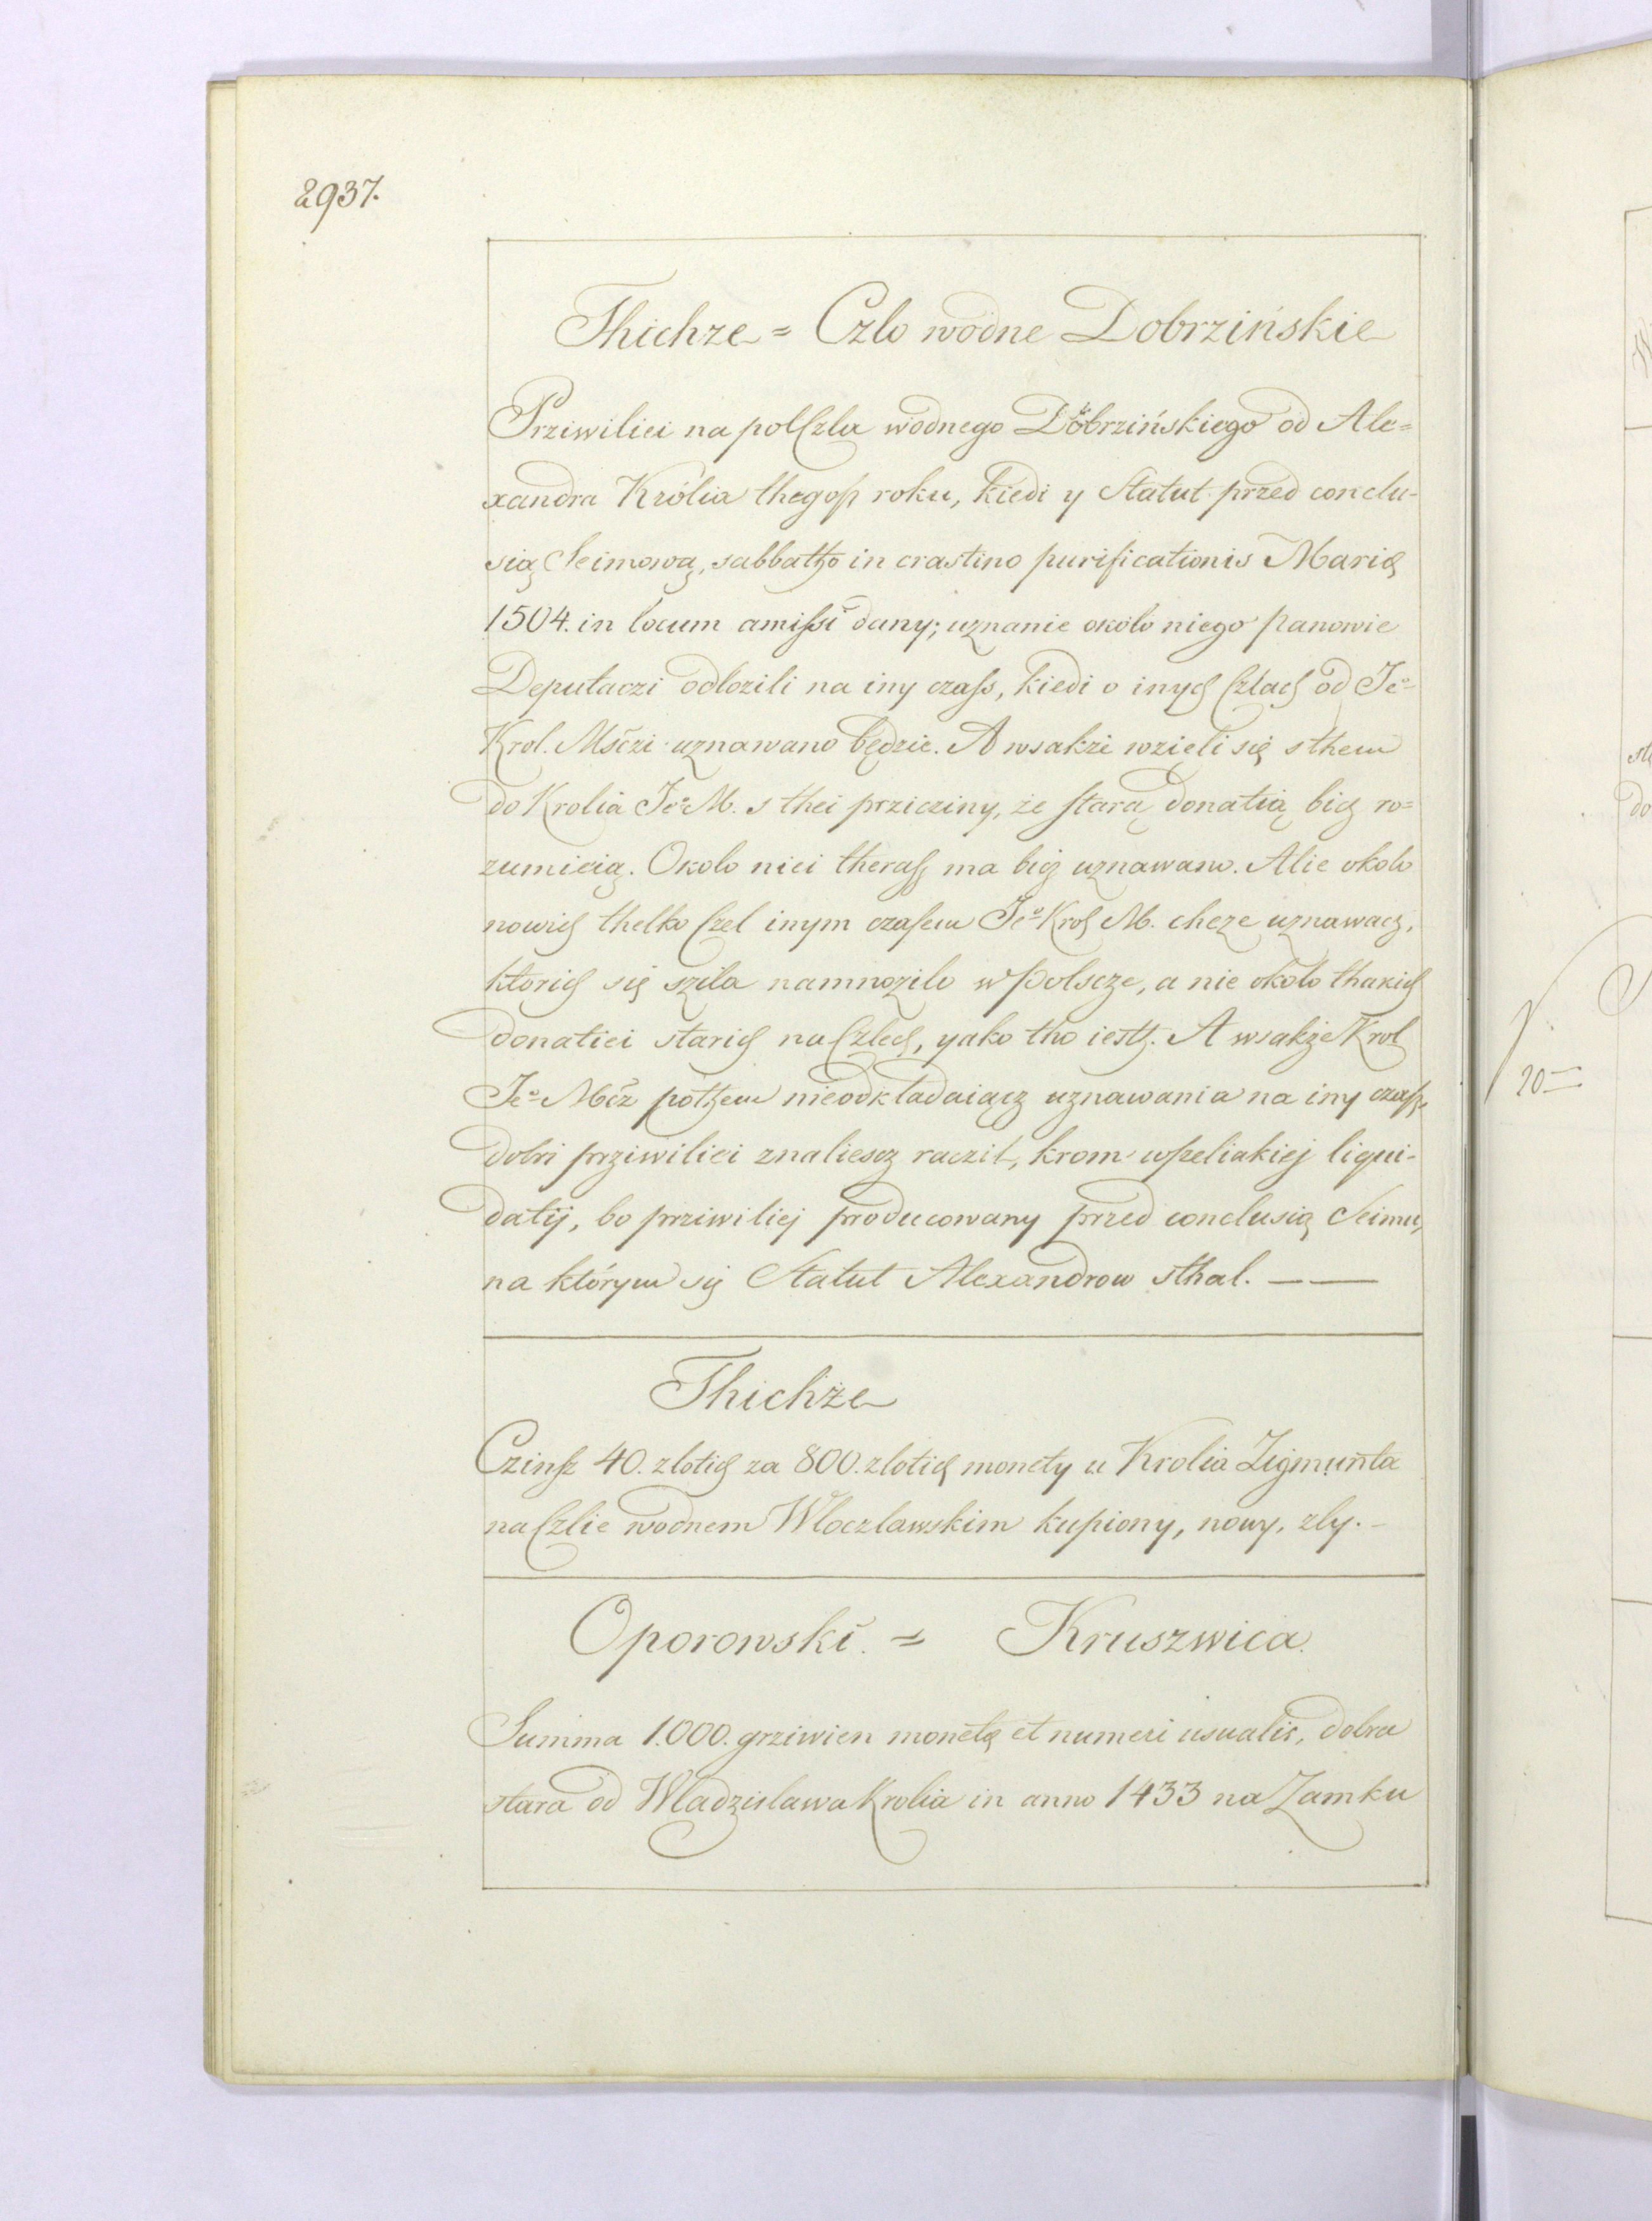 2937.
Thichze = Czlo wodne Dobrzińskie
Prziwiliei na pol Czla wodnego Dobrzińskiego od Ale=
xandra Królia thegosz roku, kiedi y Statut przed conclu-
sią Seimową, sabbatho in crastino purificationis Marię
1504. in locum amissi dany; uznanie około niego panowie
Deputaczi odłozili na iny czass, kiedi o inych Czlach od Jeº
Krol. Mśczi uznawano będzie. A wsakże wzięli się s them
do Krolia Jeº M. s thei prziciziny, że starą donatią bicz ro=
zumieią. Okolo niei therasz ma bicz uznawano. Alie okolo
nowich thelko Czel inym czasem Jeº Krol M. chcze uznawacz,
ktorich się szila namnozilo w Polscze, a nie około thakich
donatiei starich na Czlech, yako tho iesth. A wsakże Krol
Jeº Mćz pothem nieodkladaiącz uznawania na iny czasz,
dobri prziwiliei znalescz racził, krom wszeliakiej liqui-
datij, bo prziwiliej producowany przed conclusią Seimu,
na którym się Statut Alexandrow sthal. — —
Thichże
Czinsz 40. zlotich za 800. zlotich monety u Krolia Zigmunta
na Czlie wodnem Wloczlawskim kupiony, nowy, zly. -
Oporowski. = Kruszwica.
Summa 1.000. grziwien monetę et numeri usualis, dobra
stara od Wladzislawa Krolia in anno 1433 na Zamku
do
20=